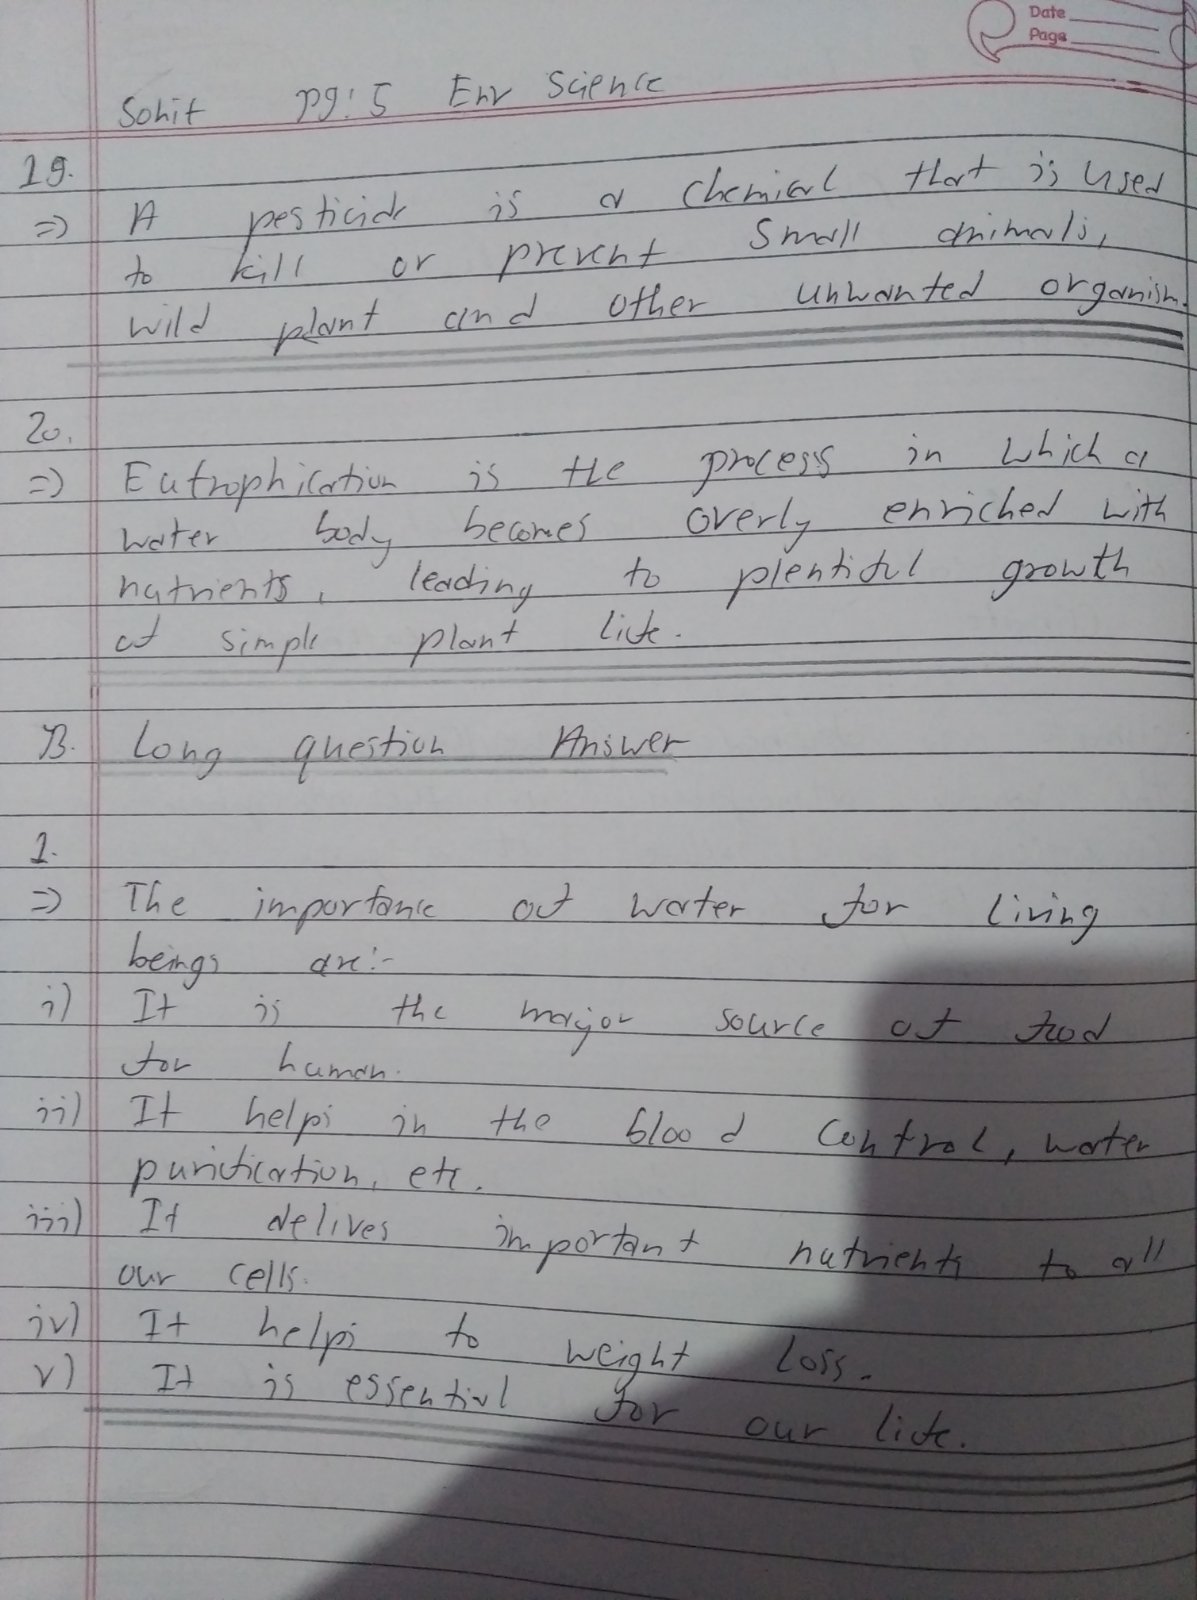 Date
Page
Sohit pg:5 Env Science
19.
=> A pesticide is a chemical that is used
to kill or prevent small animals,
wild plant and other unwanted organism.
20.
=> Eutrophication is the process in which a
water body becomes overly enriched with
nutrients, leading to plentiful growth
of simple plant life.
B. Long question Answer
1.
=> The importance of water for living
beings are:-
i) It is the major source of food
for human.
ii) It helps in the blood control, water
purification, etc.
iii) It delives important nutrients to all
our cells.
iv) It helps to weight loss.
v) It is essential for our life.